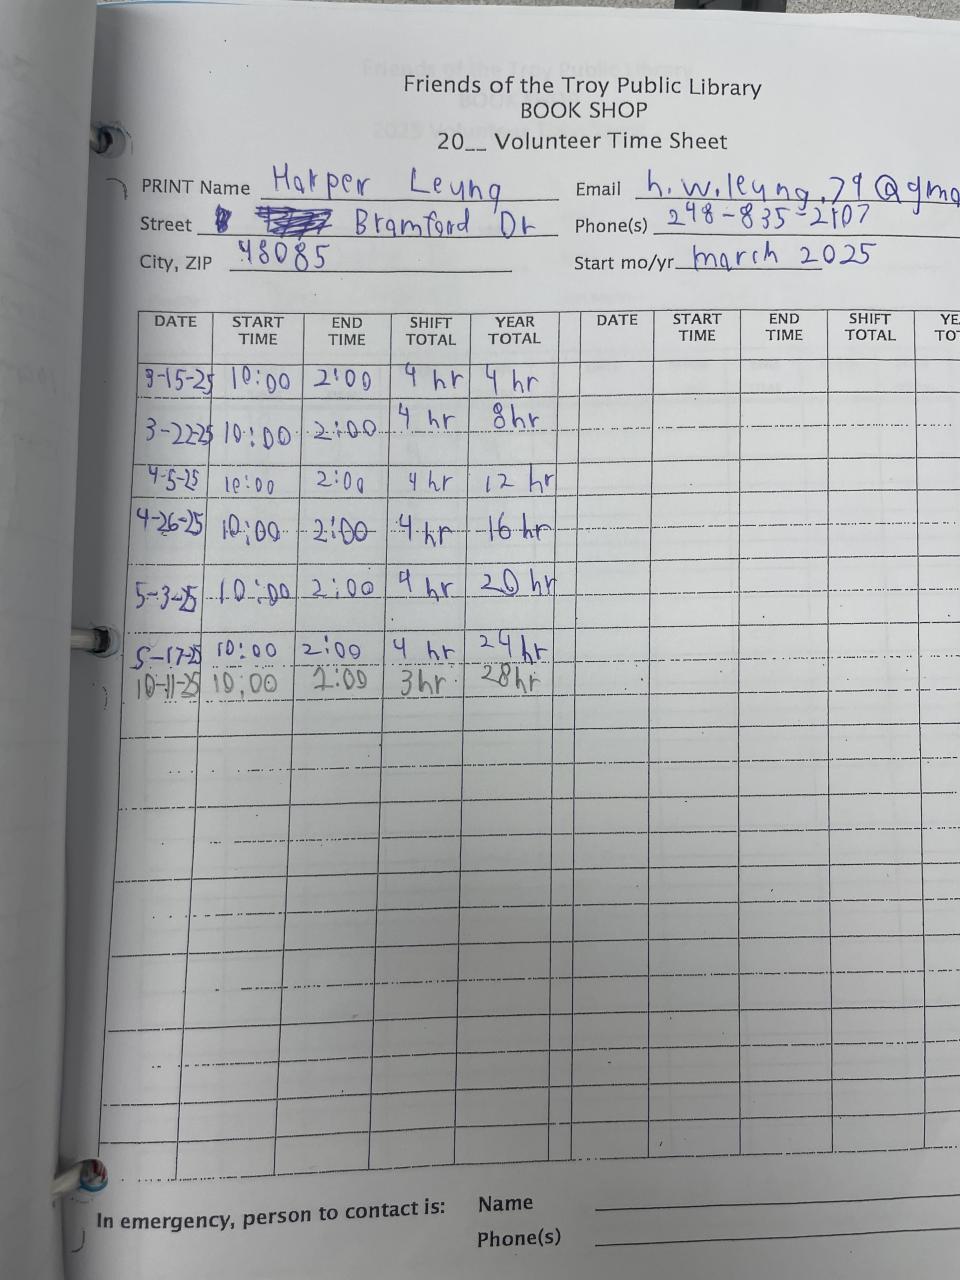 Friends of the Troy Public Library
BOOK SHOP
20__ Volunteer Time Sheet
PRINT Name Harper Leung Email h.w.leung.79@gma
Street Bramford Dr Phone(s) 248-835-2107
City, ZIP 48085 Start mo/yr march 2025
DATE START TIME END TIME SHIFT TOTAL YEAR TOTAL DATE START TIME END TIME SHIFT TOTAL YE TO
3-15-25 10:00 2:00 4 hr 4 hr
3-22-25 10:00 2:00 4 hr 8hr
4-5-25 10:00 2:00 4 hr 12 hr
4-26-25 10:00 2:00 4 hr 16 hr
5-3-25 10:00 2:00 4 hr 20 hr
5-17-25 10:00 2:00 4 hr 24hr
10-11-25 10:00 3hr 28hr
In emergency, person to contact is: Name
Phone(s)